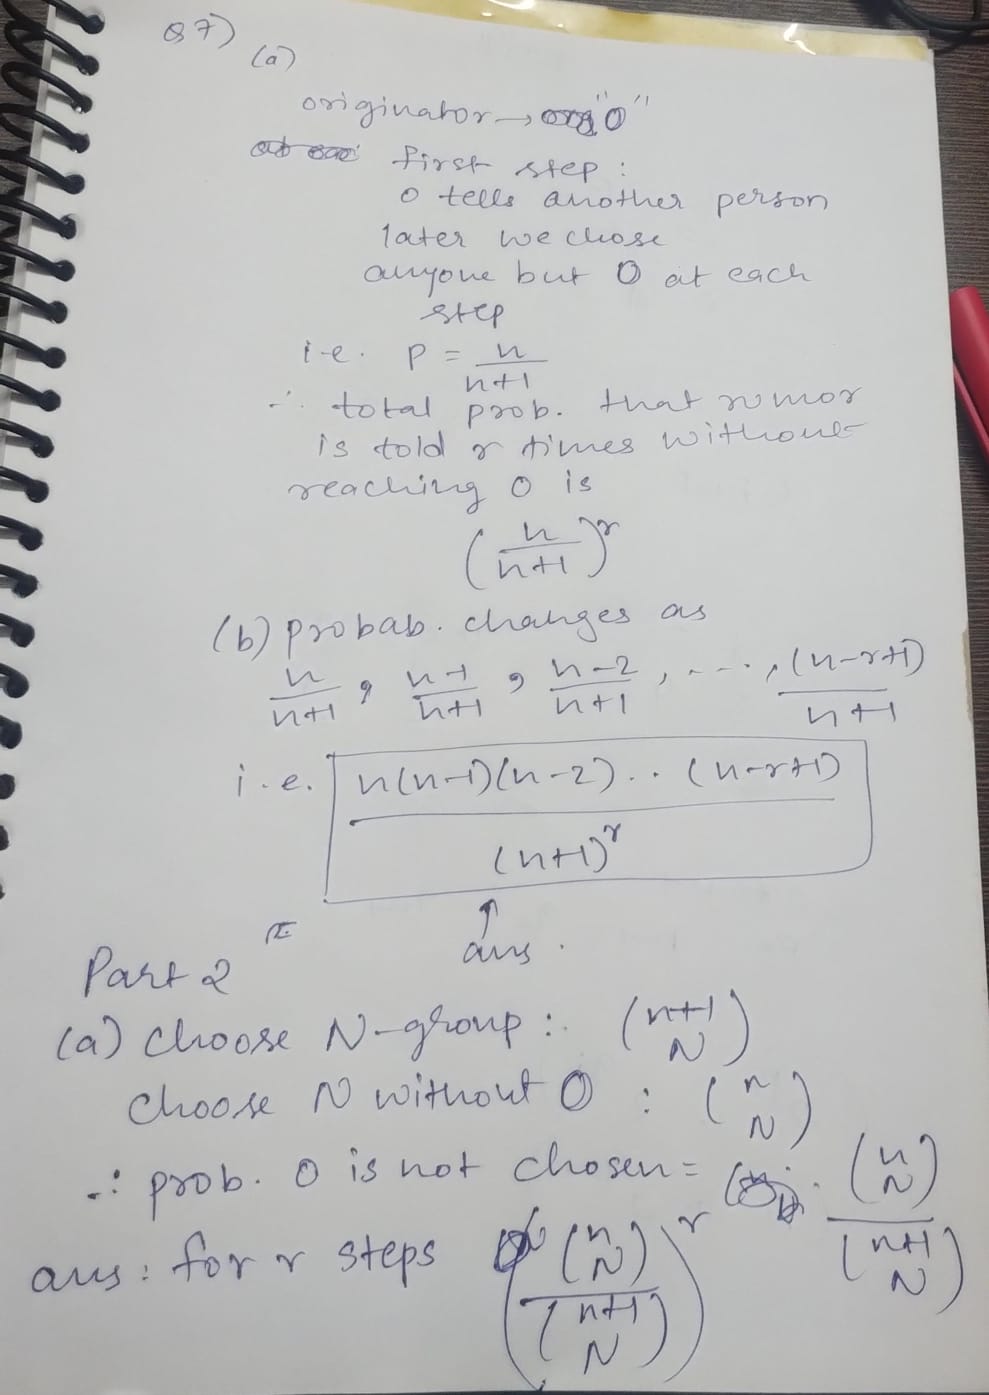 Q7)
(a)
originator → "O"
first step :
O tells another person
later we chose
anyone but O at each
step
i.e. P = n/(n+1)
∴ total prob. that rumor
is told r times without
reaching O is
(n/(n+1))^r
(b) probab. changes as
n/(n+1) , (n-1)/(n+1) , (n-2)/(n+1) , ---- , (n-r+1)/(n+1)
i.e. n(n-1)(n-2).. (n-r+1)/(n+1)^r
↑
ans .
Part 2
(a) Choose N-group : (n+1 N)
Choose N without O : (n N)
∴ prob. O is not chosen = (n N)/(n+1 N)
ans : for r steps ((n N)/(n+1 N))^r